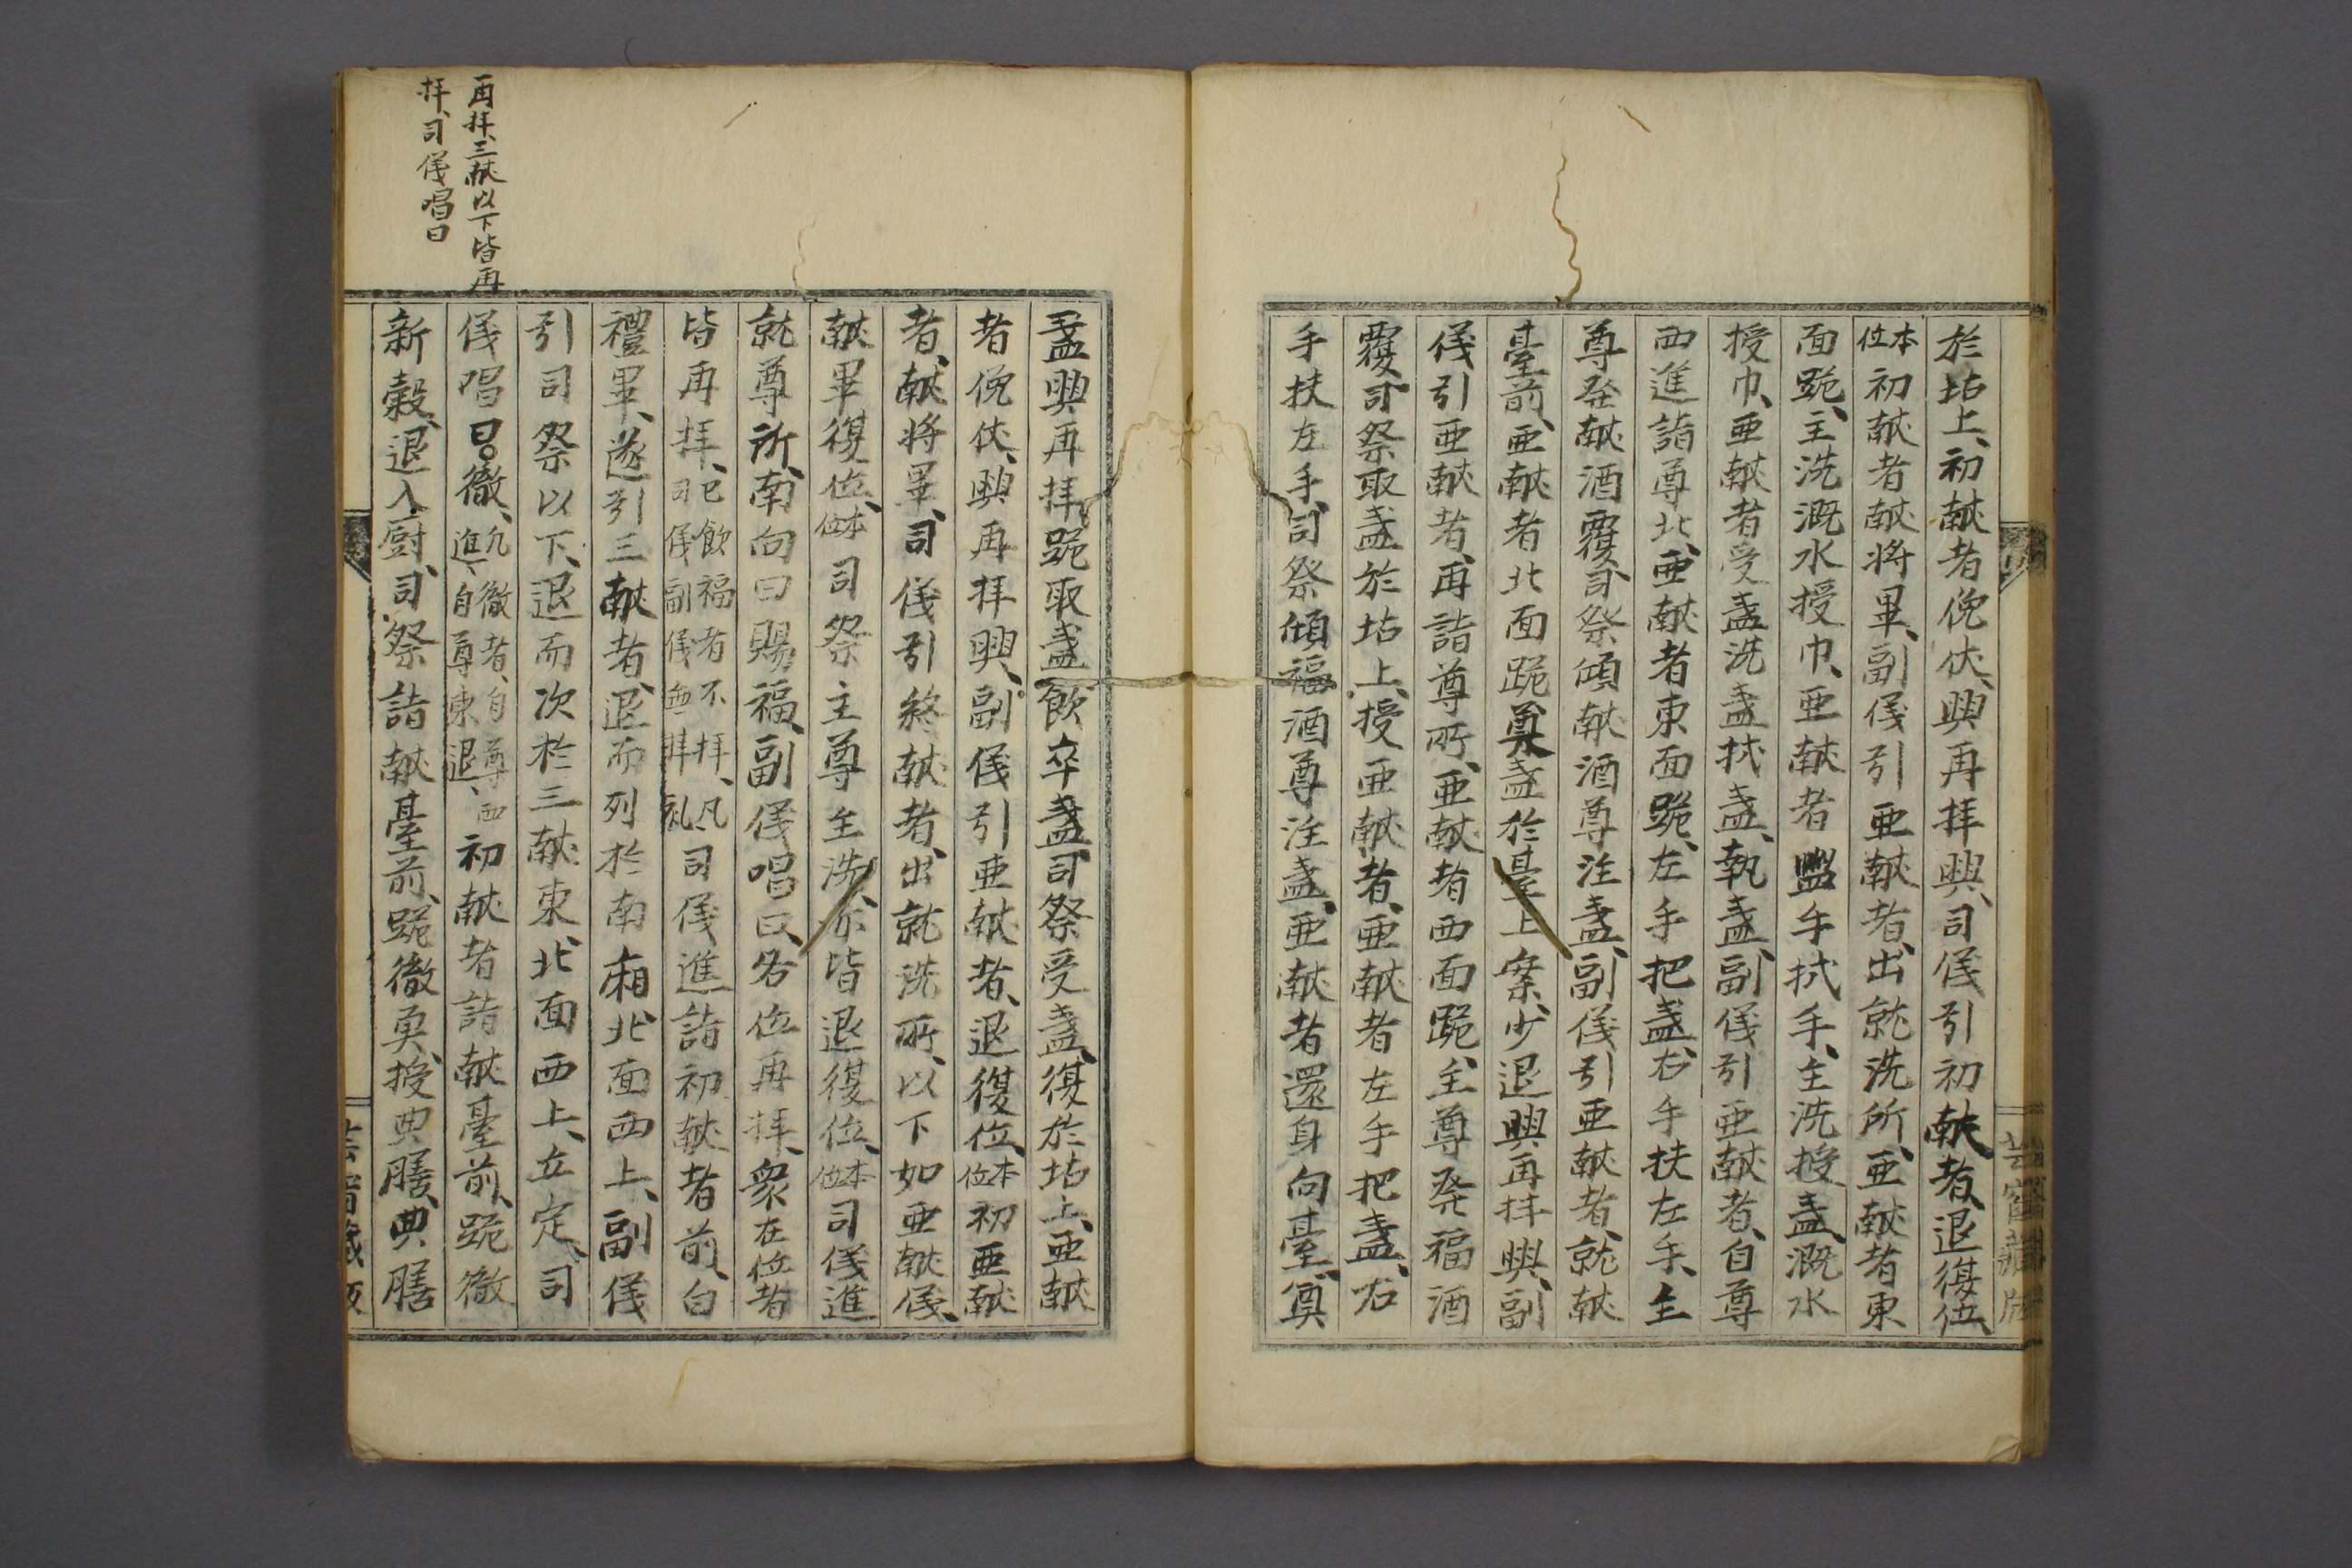 於坫上、初献者俛伏、興再拝興、司儀引初献者、退復位、
本位初献者献将畢、副儀引亜献者、出就洗所、亜献者東
面跪、主洗漑水授巾、亜献者盥手拭手、主洗授盞、漑水
授巾、亜献者受盞洗盞拭盞、執盞、副儀引亜献者、自尊
西進詣尊北、亜献者東面跪、左手把盞、右手扶左手、主
尊発献酒覆、司祭傾献酒尊注盞、副儀引亜献者、就献
臺前、亜献者北面跪奠盞於臺上案、少退興再拝興、副
儀引亜献者、再詣尊所、亜献者西面跪、主尊発福酒
覆、司祭取盞於坫上、授亜献者、亜献者左手把盞、右
手扶左手、司祭傾福酒尊注盞、亜献者還身向臺、奠
盞興再拝跪取盞飲卒盞、司祭受盞、復於坫上、亜献
者俛伏、興再拝興、副儀引亜献者、退復位、本位初亜献
者、献将畢、司儀引終献者、出就洗所、以下如亜献儀、
献畢復位、本位司祭主尊主洗、亦皆退復位、本位司儀進
就尊所、南向曰賜福、副儀唱曰、各位再拝、衆在位者
皆再拝、已飲福者不拝、凡司儀副儀無拝礼、司儀進詣初献者前、白
禮畢、遂引三献者、退而列於南廂、北面西上、副儀
引司祭以下、退而次於三献東、北面西上、立定、司
儀唱曰徹、凡徹者、自尊西進、自尊東退、初献者詣献臺前、跪徹
新穀、退入厨、司祭詣献臺前、跪徹奠、授典膳、典膳
再拝、三献以下皆再
拝、司儀唱曰
芸窗藏版